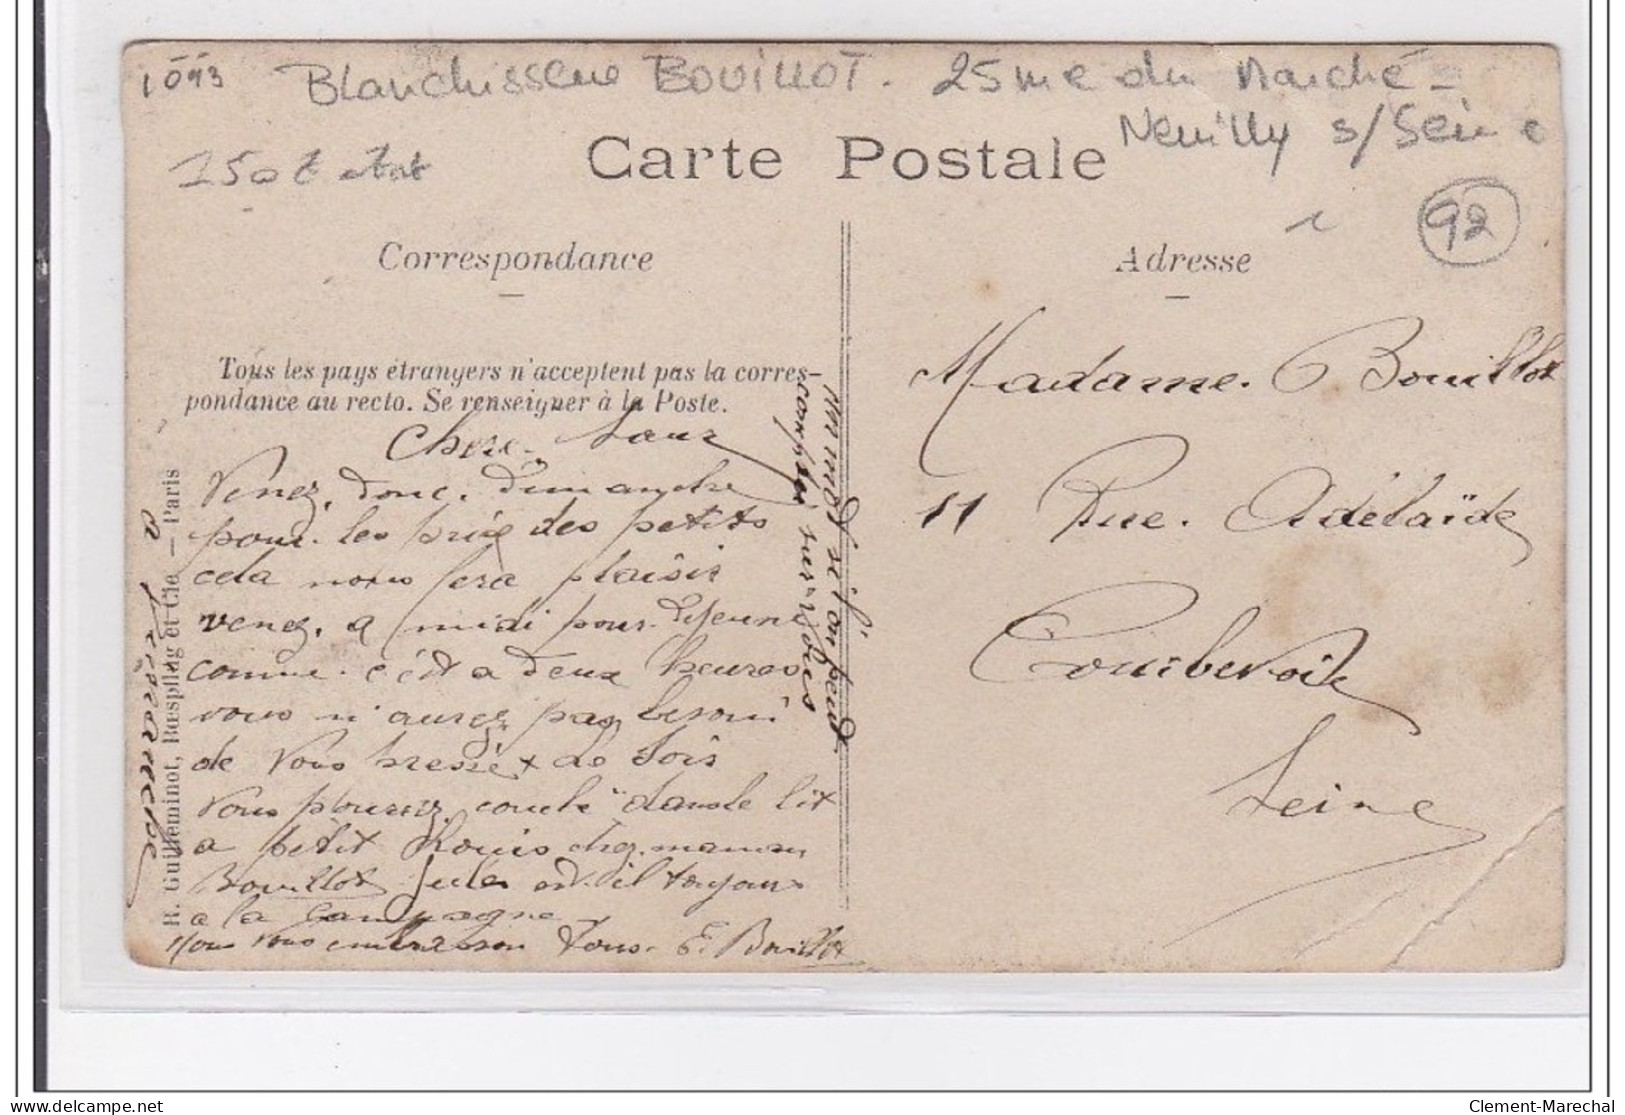 1093
Blanchisserie BOUILLOT. 25 rue du Marché -
Neuilly s/Seine
150F état
92
Carte Postale
Correspondance
Adresse
Tous les pays étrangers n'acceptent pas la corres-
pondance au recto. Se renseigner à la Poste.
Chere. Sœur
Venez. donc. Dimanche
pour. les prix des petits
cela nous fera plaisir
venez. a midi pour. Dejeuné
comme. c'ést a Deux heures
vous n'aurez pas besoin
de vous pressé
Vous pourez. couché dans le lit
a petit Louis chez. maman
Bouillot Jules est-il toujours
a la campagne
Nous vous embrasson tous. E. Bouillot
un mot si l'on peut
compter sur-vous
a Dimanche
H. Guilleminot, Bœspflug et Cie — Paris
Madame. Bouillot
11 Rue. Adélaïde
Courbevoie
Seine
Clement-Marechal